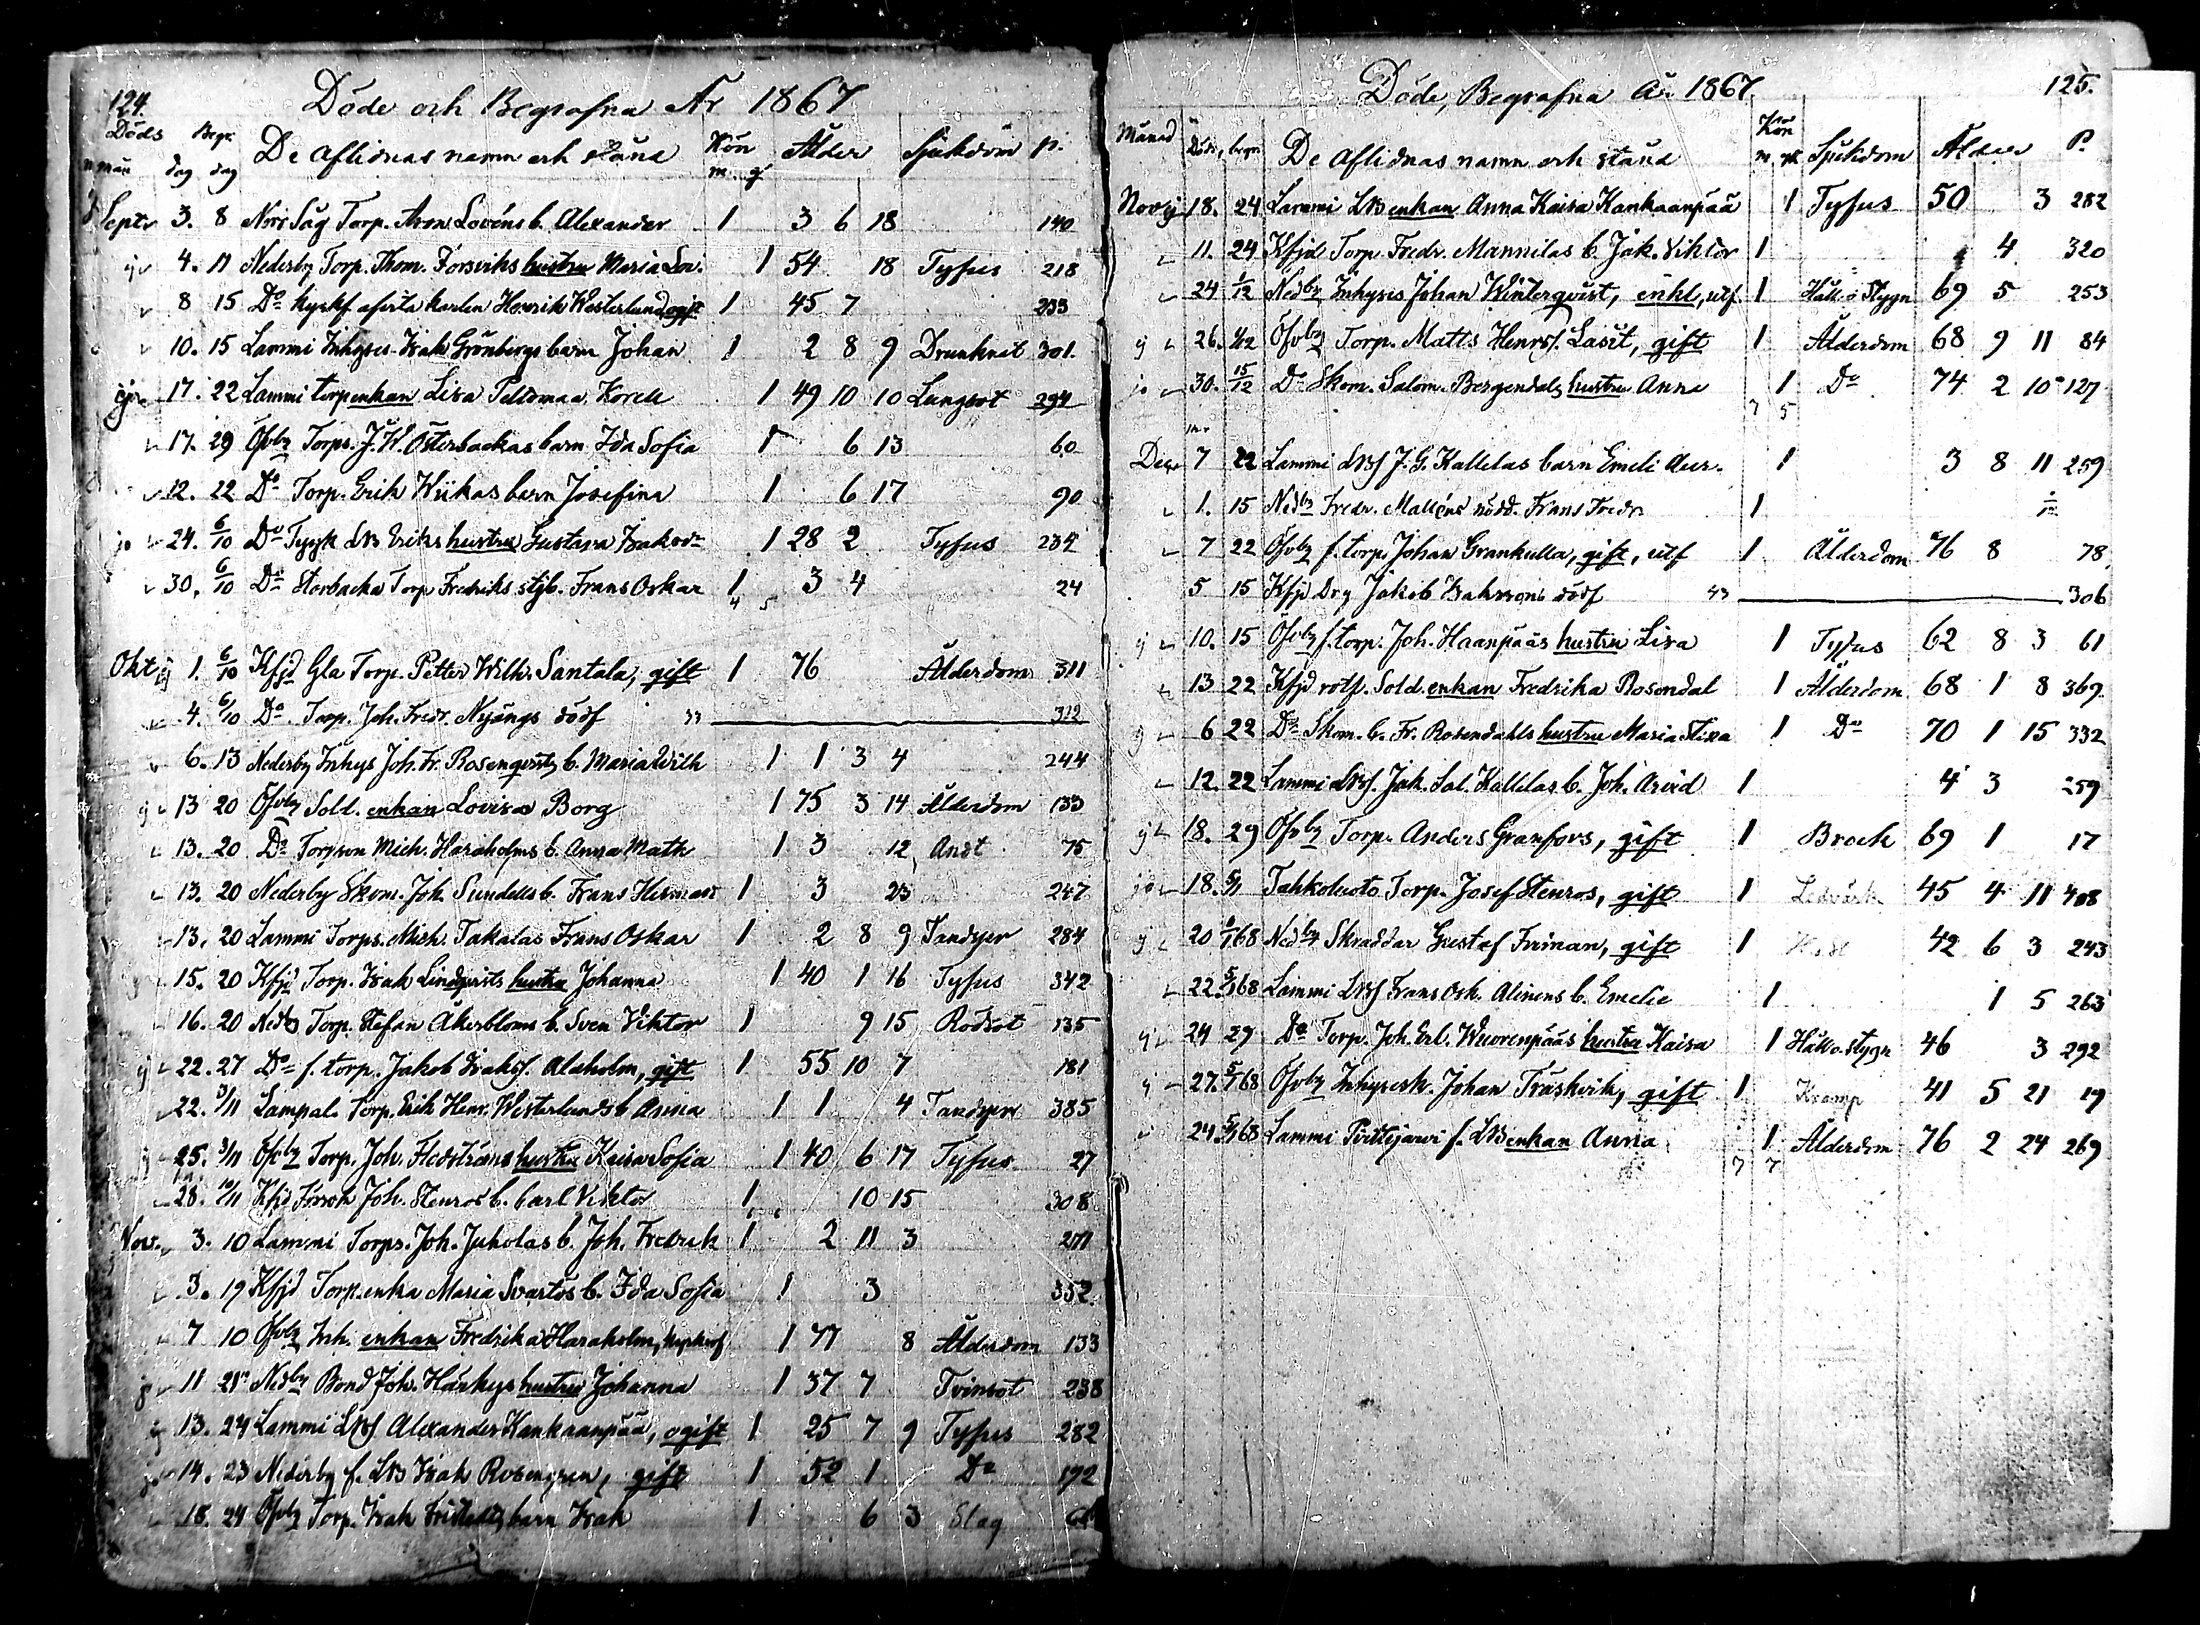 124.
Döde och Begrafna År 1867
Döds Begr. De aflidnas namn och stånd Kön Ålder Sjukdom p.
mån dag dag m. q.
Septr 3. 8 Norr Såg Torp. Arons Lovéns b. Alexander 1 3 6 18 140
4. 11 Nederby Torp. Thom. Forsviks hustru Maria Lov. 1 54 18 Tyfus 218
8 15 Do kyrkf. afsista karlen Henrik Westerlund ogift 1 45 7 233
10. 15 Lammi Inhyses Isak Grönbergs barn Johan 1 2 8 9 Drunknat 301
17. 22 Lammi torpenkan Lisa Peldomaa Korell 1 49 10 10 Lungsot 294
17. 29 Öfvby Torps. J. W. Österbackas barn Ida Sofia 1 6 13 60
12. 22 Do Torp. Erik Wiikas barn Josefina 1 6 17 90
24. 6/10 Do Tyyk LB Eriks hustru Gustava Isaksdr 1 28 2 Tyfus 234
30. 6/10 Do Storbacka Torp Fredriks styb. Frans Oskar 1 3 4 24
4 5
Okt 1. 6/10 Kfjd Gla Torp. Petter Wilh. Santala, gift 1 76 Ålderdom 311
4. 6/10 Do Torp. Joh. Fredr. Nyängs dödf 312
6. 13 Nederby Inhys Joh. Fr. Rosenqvists b. Maria Wilh 1 1 3 4 244
13 20 Öfvby Sold. enkan Lovisa Borg 1 75 3 14 Ålderdom 133
13. 20 Do Torpson Mich. Haraholms b. Anna Math 1 3 12 Andt 75
13. 20 Nederby Skom. Joh. Sundells b. Frans Herman 1 3 23 247
13. 20 Lammi Torps. Mich. Takalas Frans Oskar 1 2 8 9 Tandsper 284
15. 20 Kfjd Torp. Isak Lindqvists hustru Johanna 1 40 1 16 Tyfus 342
16. 20 Nedby Torp. Stefan Åkerbloms b. Sven Viktor 1 9 15 Rödsot 135
22. 27 Do f. torp. Jakob Isakss. Alaholm, gift 1 55 10 7 181
22. 3/11 Lampal. Torp. Erik Henr. Westerlunds b. Anna 1 1 4 Tandsper 385
25. 3/11 Öfvby Torp. Joh. Hedströms hustru Kaisa Sofia 1 40 6 17 Tyfus 27
28. 10/11 Kfjd Torson Joh. Stenros b. Carl Viktor 1 10 15 308
Nov. 3. 10 Lammi Torps. Joh. Juholas b. Joh. Fredrik 1 2 11 3 271
3. 19 Kfjd Torp.enka Maria Svartös b. Ida Sofia 1 3 352
7 10 Öfvby Inh. enkan Fredrika Haraholm, 1 77 8 Ålderdom 133
11 21 Nedby Bond Joh. Härkys hustru Johanna 1 37 7 Tvinsot 238
13. 24 Lammi LBs Alexander Kankaanpää, ogift 1 25 7 9 Tyfus 282
14. 23 Nederby f. LB Isak Rosengren, gift 1 52 1 Do 192
18. 24 Öfvby Torp. Isak barn Isak 1 6 3 Slag
125.
Döde, Begrafna År 1867
Månad Döds, begr. De aflidnas namn och stånd Kön Sjukdom Ålder P.
m. qk
Nov 18. 24 Lammi LB enkan Anna Kaisa Kankaanpää 1 Tyfus 50 3 282
11. 24 Kfjd Torp. Fredr. Mannilas b. Jak. Viktor 1 4 320
24 1/12 Nedby Inhyses Johan Winterqvist, enkl, utf. 1 Håll o Stygn 69 5 253
26. 1/12 Öfvby Torp. Matts Henrss. Lasit, gift 1 Ålderdom 68 9 11 84
30. 15/12 Do Skom. Salom. Bergendals hustru Anna 1 Do 74 2 10 127
7 5
Decr 7 22 Lammi LBs J. G. Kallelas barn Emeli Aur. 1 3 8 11 259
1. 15 Nedby Fredr. Malléns nödd. Frans Fredr 1
7 22 Öfvby f. torp. Johan Grankulla, gift, utf 1 Ålderdom 76 8 78
5 15 Kfjd Drg Jakob Isakssons dödf 306
10. 15 Öfvby f. torp. Joh. Haanpääs hustru Lisa 1 Tyfus 62 8 3 61
13 22 Kfjd rotf. Sold. enkan Fredrika Rosendal 1 Ålderdom 68 1 8 369
6 22 Do Skom. C. Fr. Rosendahls hustru Maria Stina 1 Do 70 1 15 332
12. 22 Lammi LBs. Jak. Sal. Kallelas b. Joh. Arvid 1 4 3 259
18. 29 Öfvby Torp. Anders Granfors, gift 1 Brock 69 1 17
18. 5/1 Tahkoluoto Torp. Josef Stenros, gift 1 Ledvärk 45 4 11 408
20 Nedby Skräddar Gustaf Friman, gift 1 42 6 3 243
22. 5/1 68 Lammi LBs Frans Osk. Alinens b. Emelie 1 1 5 263
24 29 Do Torp. Joh. Erl. Wuorenpääs hustru Kaisa 1 Håll o. stygn 46 3 292
27. 5/1 68 Öfvby Inhyresk. Johan Träskvik, gift 1 Kramp 41 5 21 19
24. 5/1 68 Lammi Pirttijärvi f. LB enkan Anna 1 Ålderdom 76 2 24 269
7 7